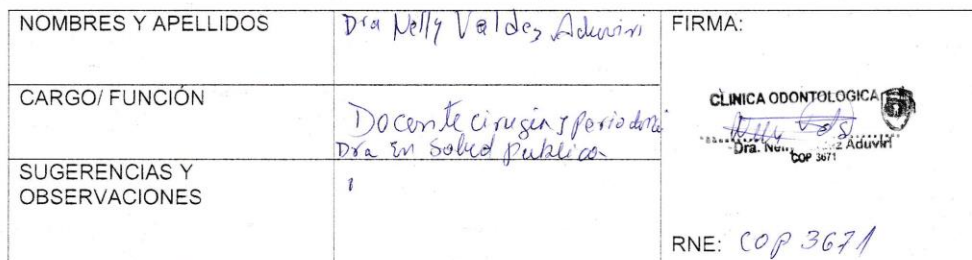 NOMBRES Y APELLIDOS
Dra Nelly Valdez Aduviri
FIRMA:
CARGO/ FUNCIÓN
Docente cirugia y periodoncia
Dra En Salud publica
CLINICA ODONTOLOGICA
Dra. Nelly Aduviri
COP 3671
SUGERENCIAS Y
OBSERVACIONES
RNE: COP 3671